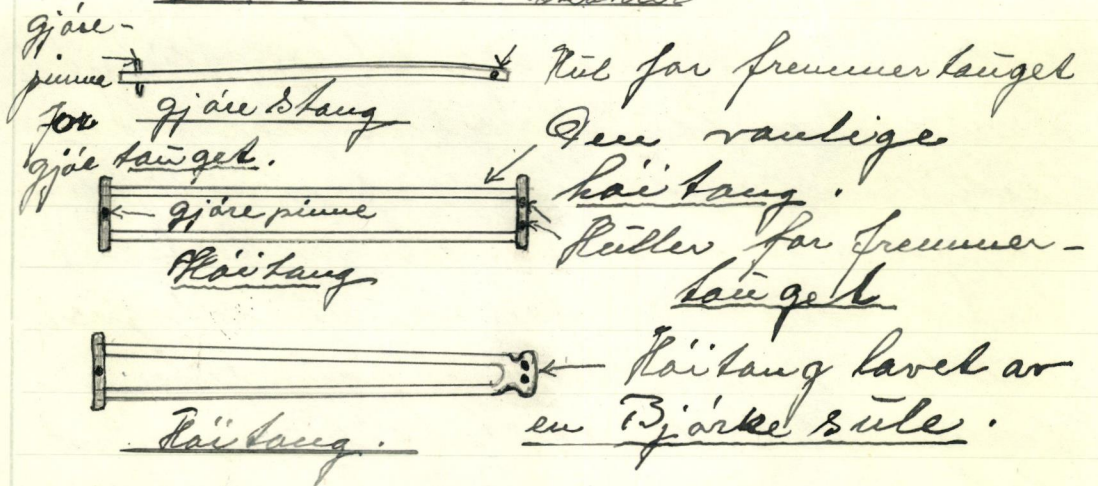 gjóre-
pinne
for
gjóre tauget.
gjóre stang
Hŭl for fremmertaŭget
Den vanlige
hóitang.
gjóre pinne
Hŭller for fremmer-
taŭget
Hóitang
Hóitang lavet av
en Bjórke sŭle.
Hóitang.